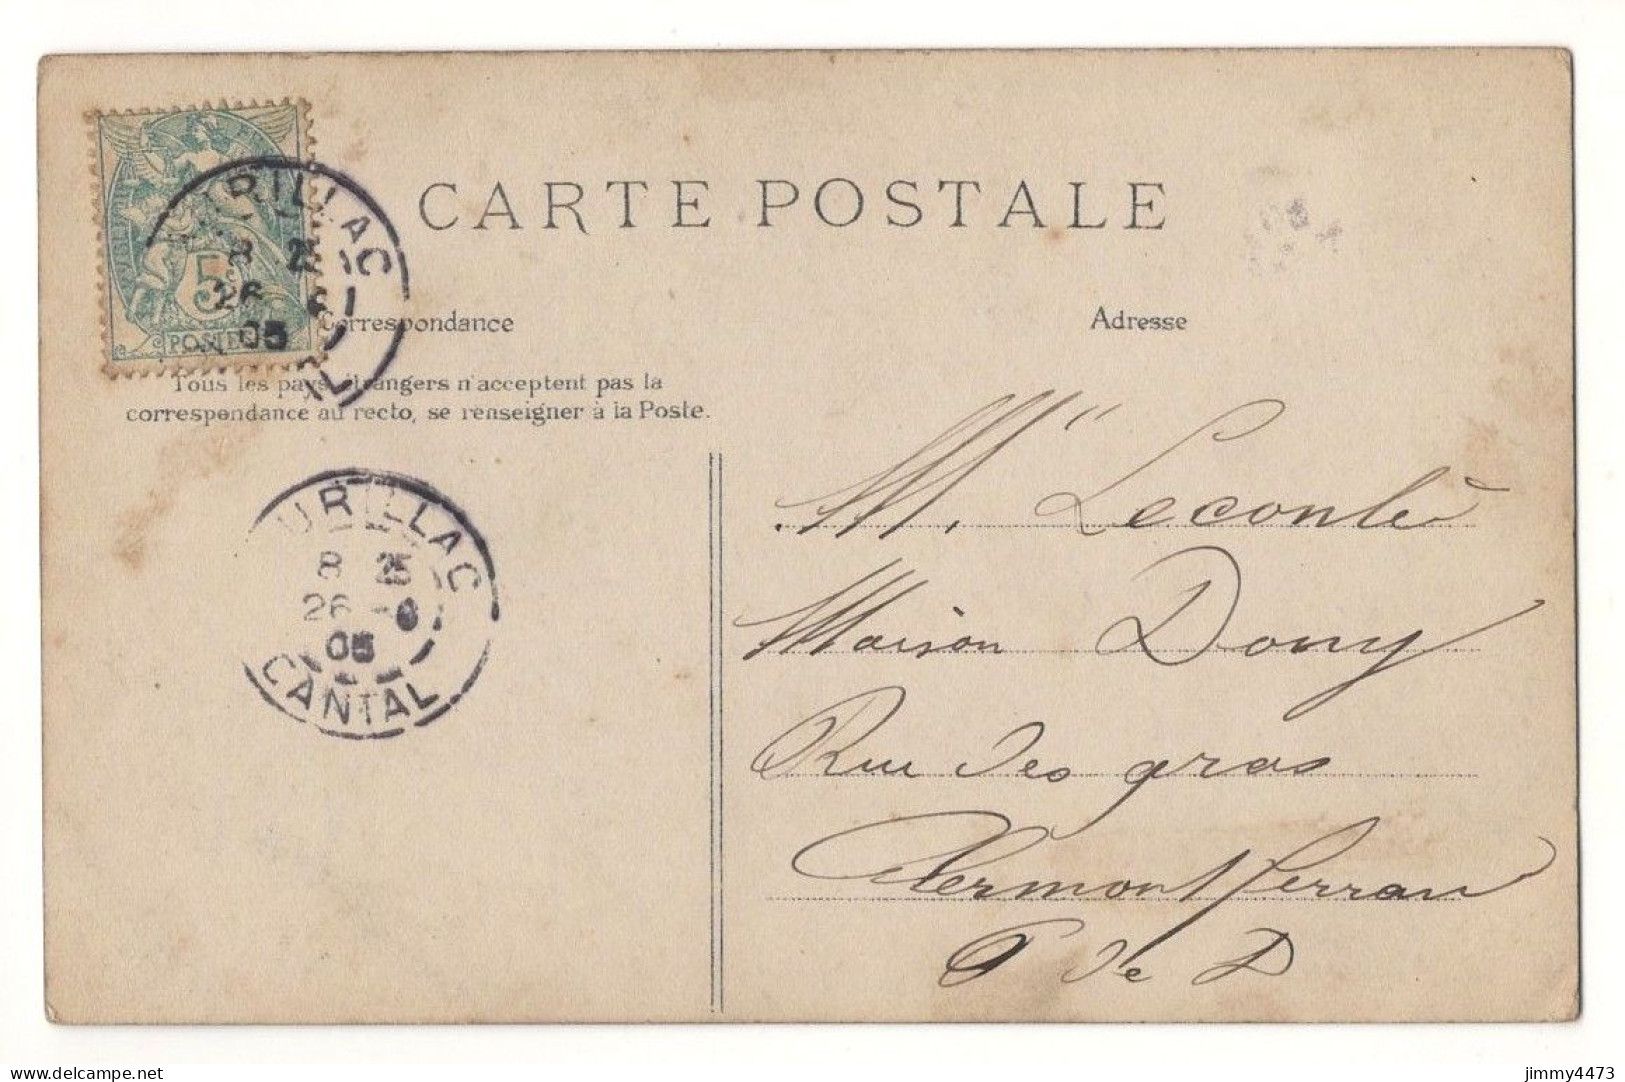 CARTE POSTALE
Correspondance
Adresse
Tous les pays étrangers n'acceptent pas la
correspondance au recto, se renseigner à la Poste.
5c
POSTES
URILLAC
8 25
26
05
L
URILLAC
8 25
26 -6
05
CANTAL
M. Leconte
Maison Dony
Rue des gras
Clermont ferran
P de D
delcampe.net
jimmy4473